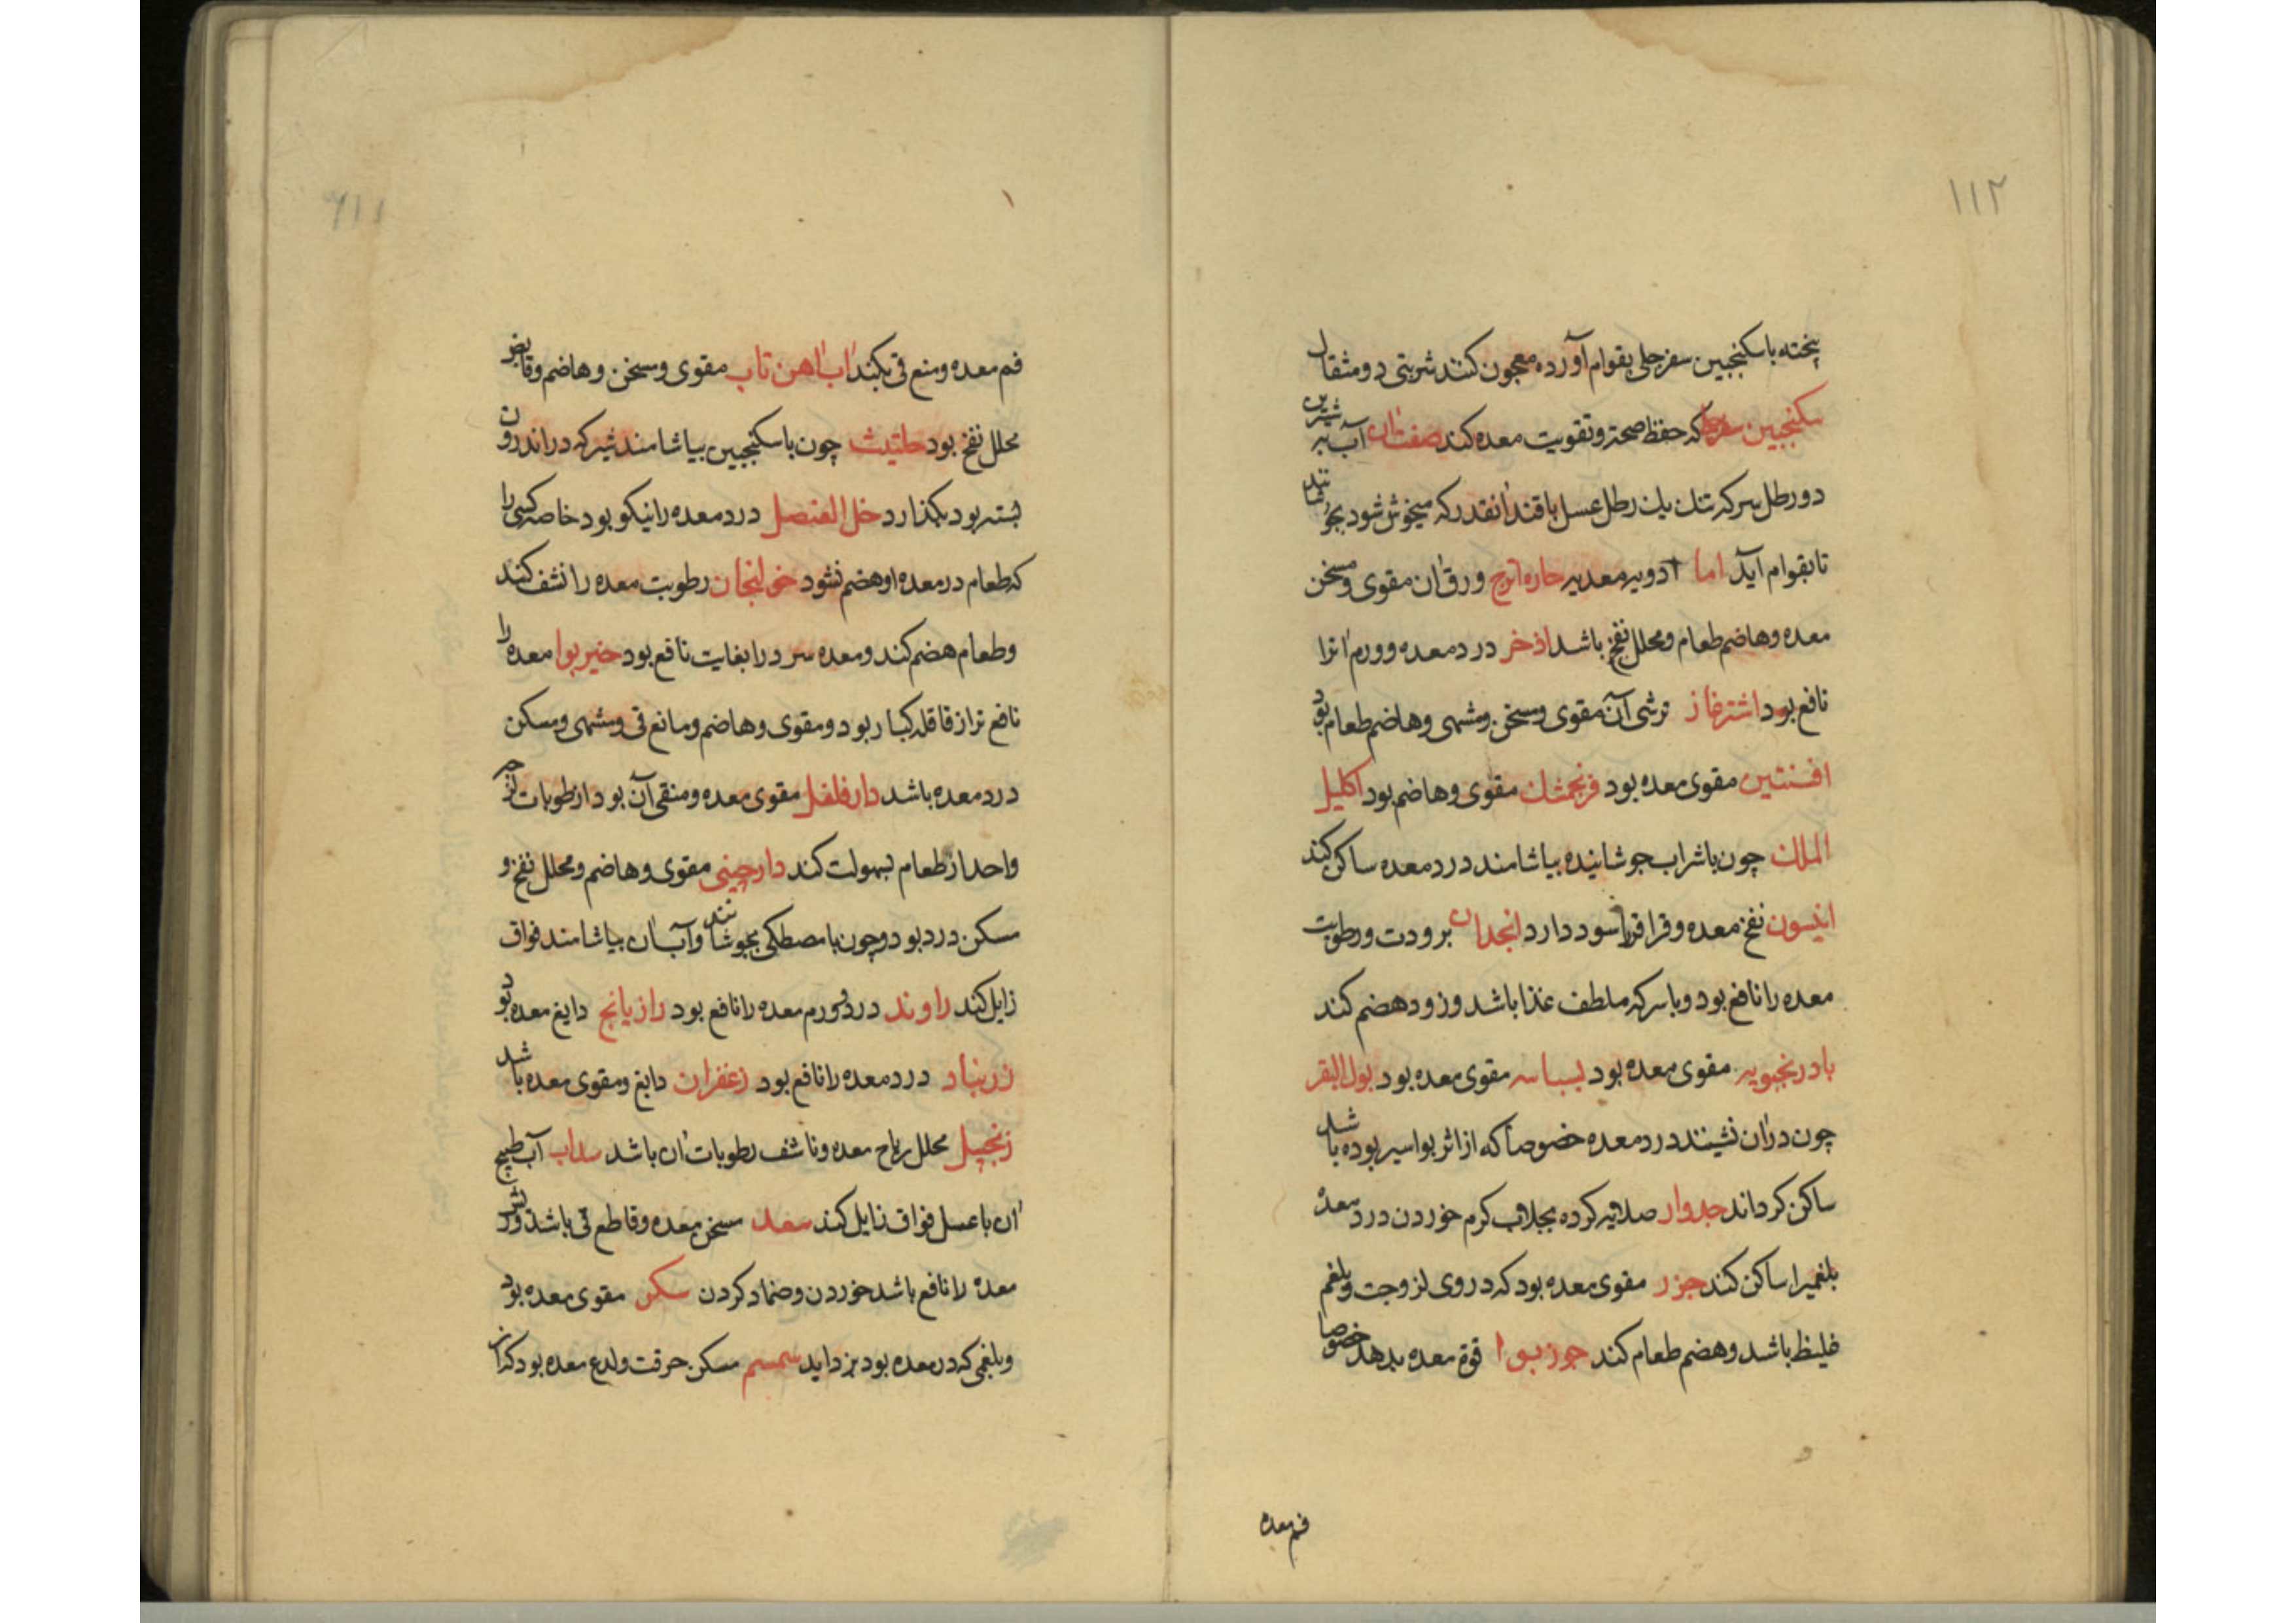 ۱۱۲
پخته باسکنجبین سفرجلی بقوام آورده معجون کنند شربتی دو مثقال
سکنجبین سفرجلی که حفظ صحة وتقویت معده کند صفت ان آب به شیرین
دورطل سرکه تنک یک رطل عسل یا قند انقدر که میخوش شود بجوشانند
تا بقوام آید اما ادویه معدیه حاره اترج ورق ان مقوی ومسخن
معده وهاضم طعام ومحلل نفخ باشد اذخر درد معده وورم انرا
نافع بود اشترغاز ترشی آن مقوی ومسخن ومشهی وهاضم طعام بود
افسنتین مقوی معده بود فرنجمشک مقوی وهاضم بود اکلیل
الملک چون باشراب جوشانیده بیاشامند درد معده ساکن کند
انیسون نفخ معده وقراقر را سود دارد انجدان برودت ورطوبت
معده را نافع بود وباسرکه ملطف غذا باشد وزود هضم کند
بادرنجبویه مقوی معده بود بسباسه مقوی معده بود بول البقر
چون دران نشینند درد معده خصوصا که از اثر بواسیر بوده باشد
ساکن کرداند جدوار صلایه کرده بجلاب کرم خوردن درد معده
بلغمیرا ساکن کند جزر مقوی معده بود که دروی لزوجت وبلغم
غلیظ باشد وهضم طعام کند جوز بوا قوة معده بدهد خصوصا
فم معده
فم معده ومنع قی بکند اب اهن تاب مقوی ومسخن وهاضم وقابض
محلل نفخ بود حلتیث چون باسکنجبین بیاشامند شیر که دراندرون
بسته بود بکذارد خل العنصل درد معده را نیکو بود خاصه کسی را
که طعام درمعده او هضم نشود خولنجان رطوبت معده را نشف کند
وطعام هضم کند ومعده سرد را بغایت نافع بود خیربوا معده را
نافع تر از قاقله کبار بود ومقوی وهاضم ومانع قی ومشهی ومسکن
درد معده باشد دارفلفل مقوی معده ومنقی آن بود از رطوبات لزج
واحدار طعام بسهولت کند دارچینی مقوی وهاضم ومحلل نفخ و
مسکن درد بود وچون با مصطکی بجوشانند وآب ان بیاشامند فواق
زایل کند راوند درد وورم معده را نافع بود رازیانج دابغ معده بود
زرنباد درد معده را نافع بود زعفران دابغ ومقوی معده باشد
زنجبیل محلل ریاح معده وناشف رطوبات ان باشد سداب آب طبیخ
ان باعسل فواق زایل کند سعد مسخن معده وقاطع قی باشد
معده را نافع باشد خوردن وضماد کردن سکر مقوی معده بود
وبلغمی که در معده بود بزداید سمسم مسکن حرقت ولدغ معده بود که از